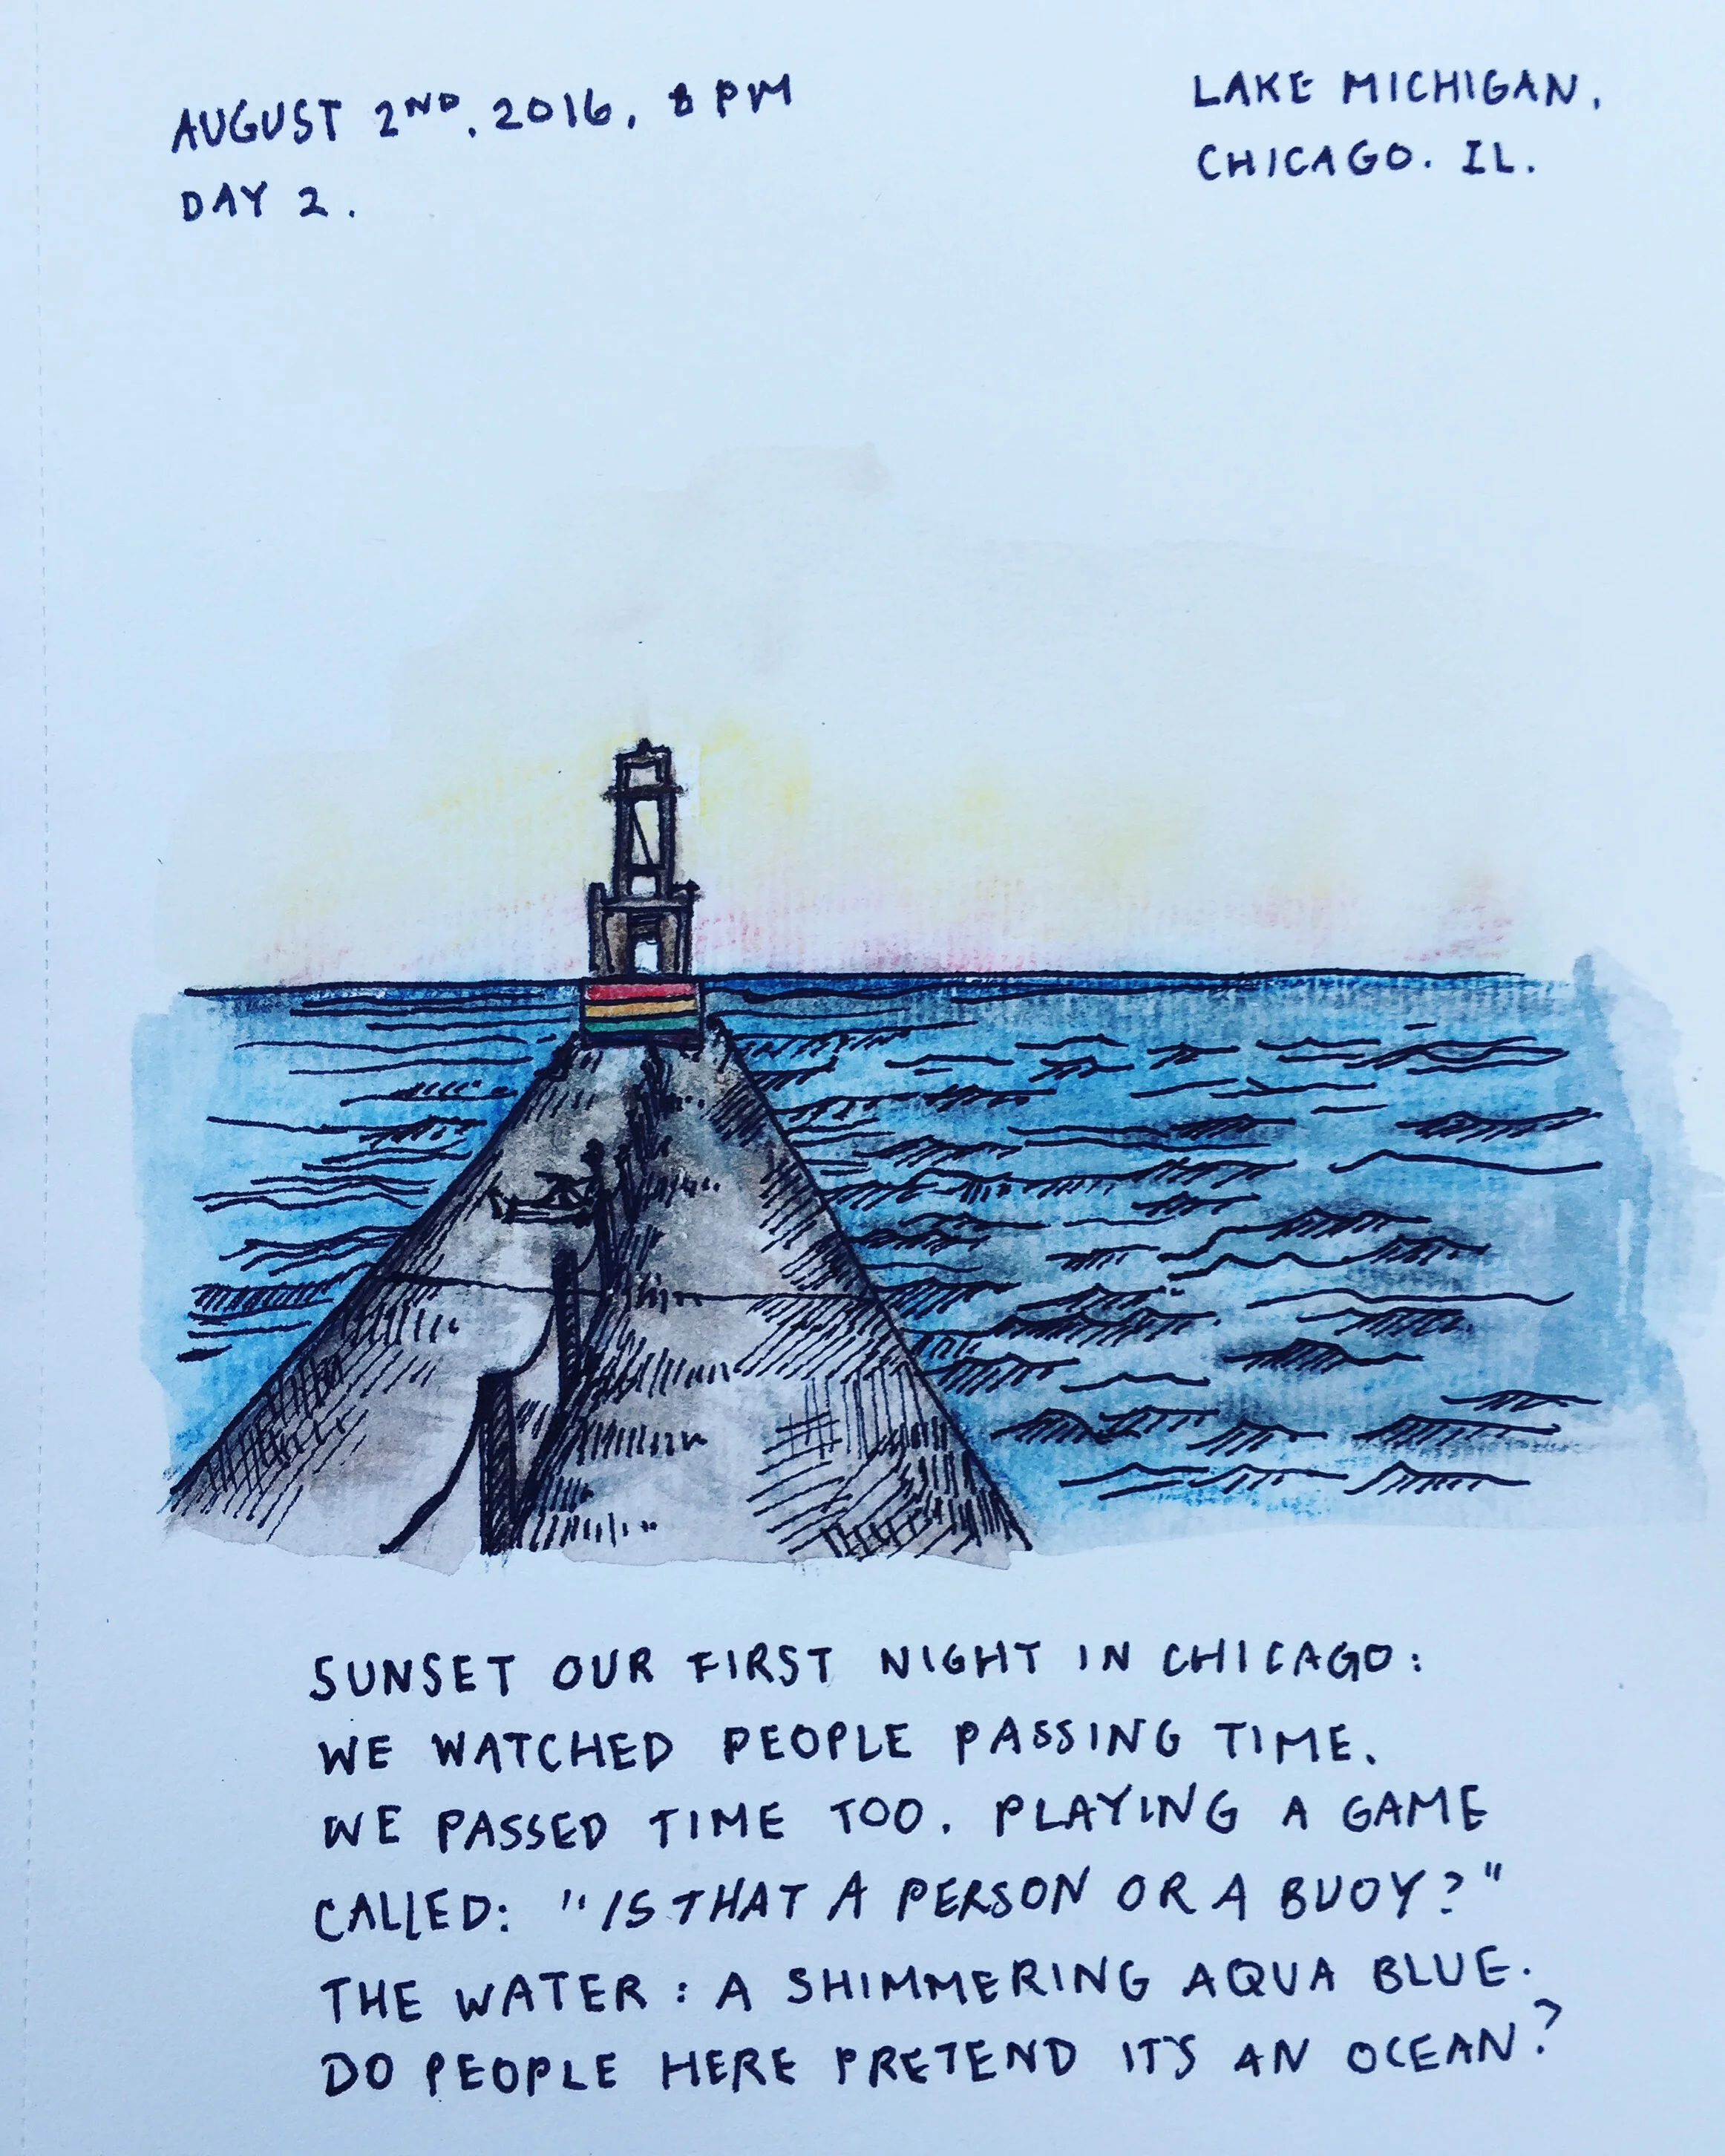 AUGUST 2ND, 2016, 8 PM
DAY 2.
LAKE MICHIGAN,
CHICAGO. IL.
SUNSET OUR FIRST NIGHT IN CHICAGO:
WE WATCHED PEOPLE PASSING TIME.
WE PASSED TIME TOO. PLAYING A GAME
CALLED: "IS THAT A PERSON OR A BUOY?"
THE WATER: A SHIMMERING AQUA BLUE.
DO PEOPLE HERE PRETEND IT'S AN OCEAN?